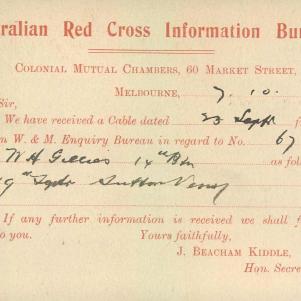 ralian Red Cross Information Bu
Colonial Mutual Chambers, 60 Market Street,
Melbourne, 7.10.
Sir,
We have received a Cable dated 23 Septr
n W. & M. Enquiry Bureau in regard to No. 67
W H Gillies 14th Btn as fol
9th Septr Sutton Veny
If any further information is received we shall f
o you. Yours faithfully,
J. BEACHAM KIDDLE,
Hon. Secre